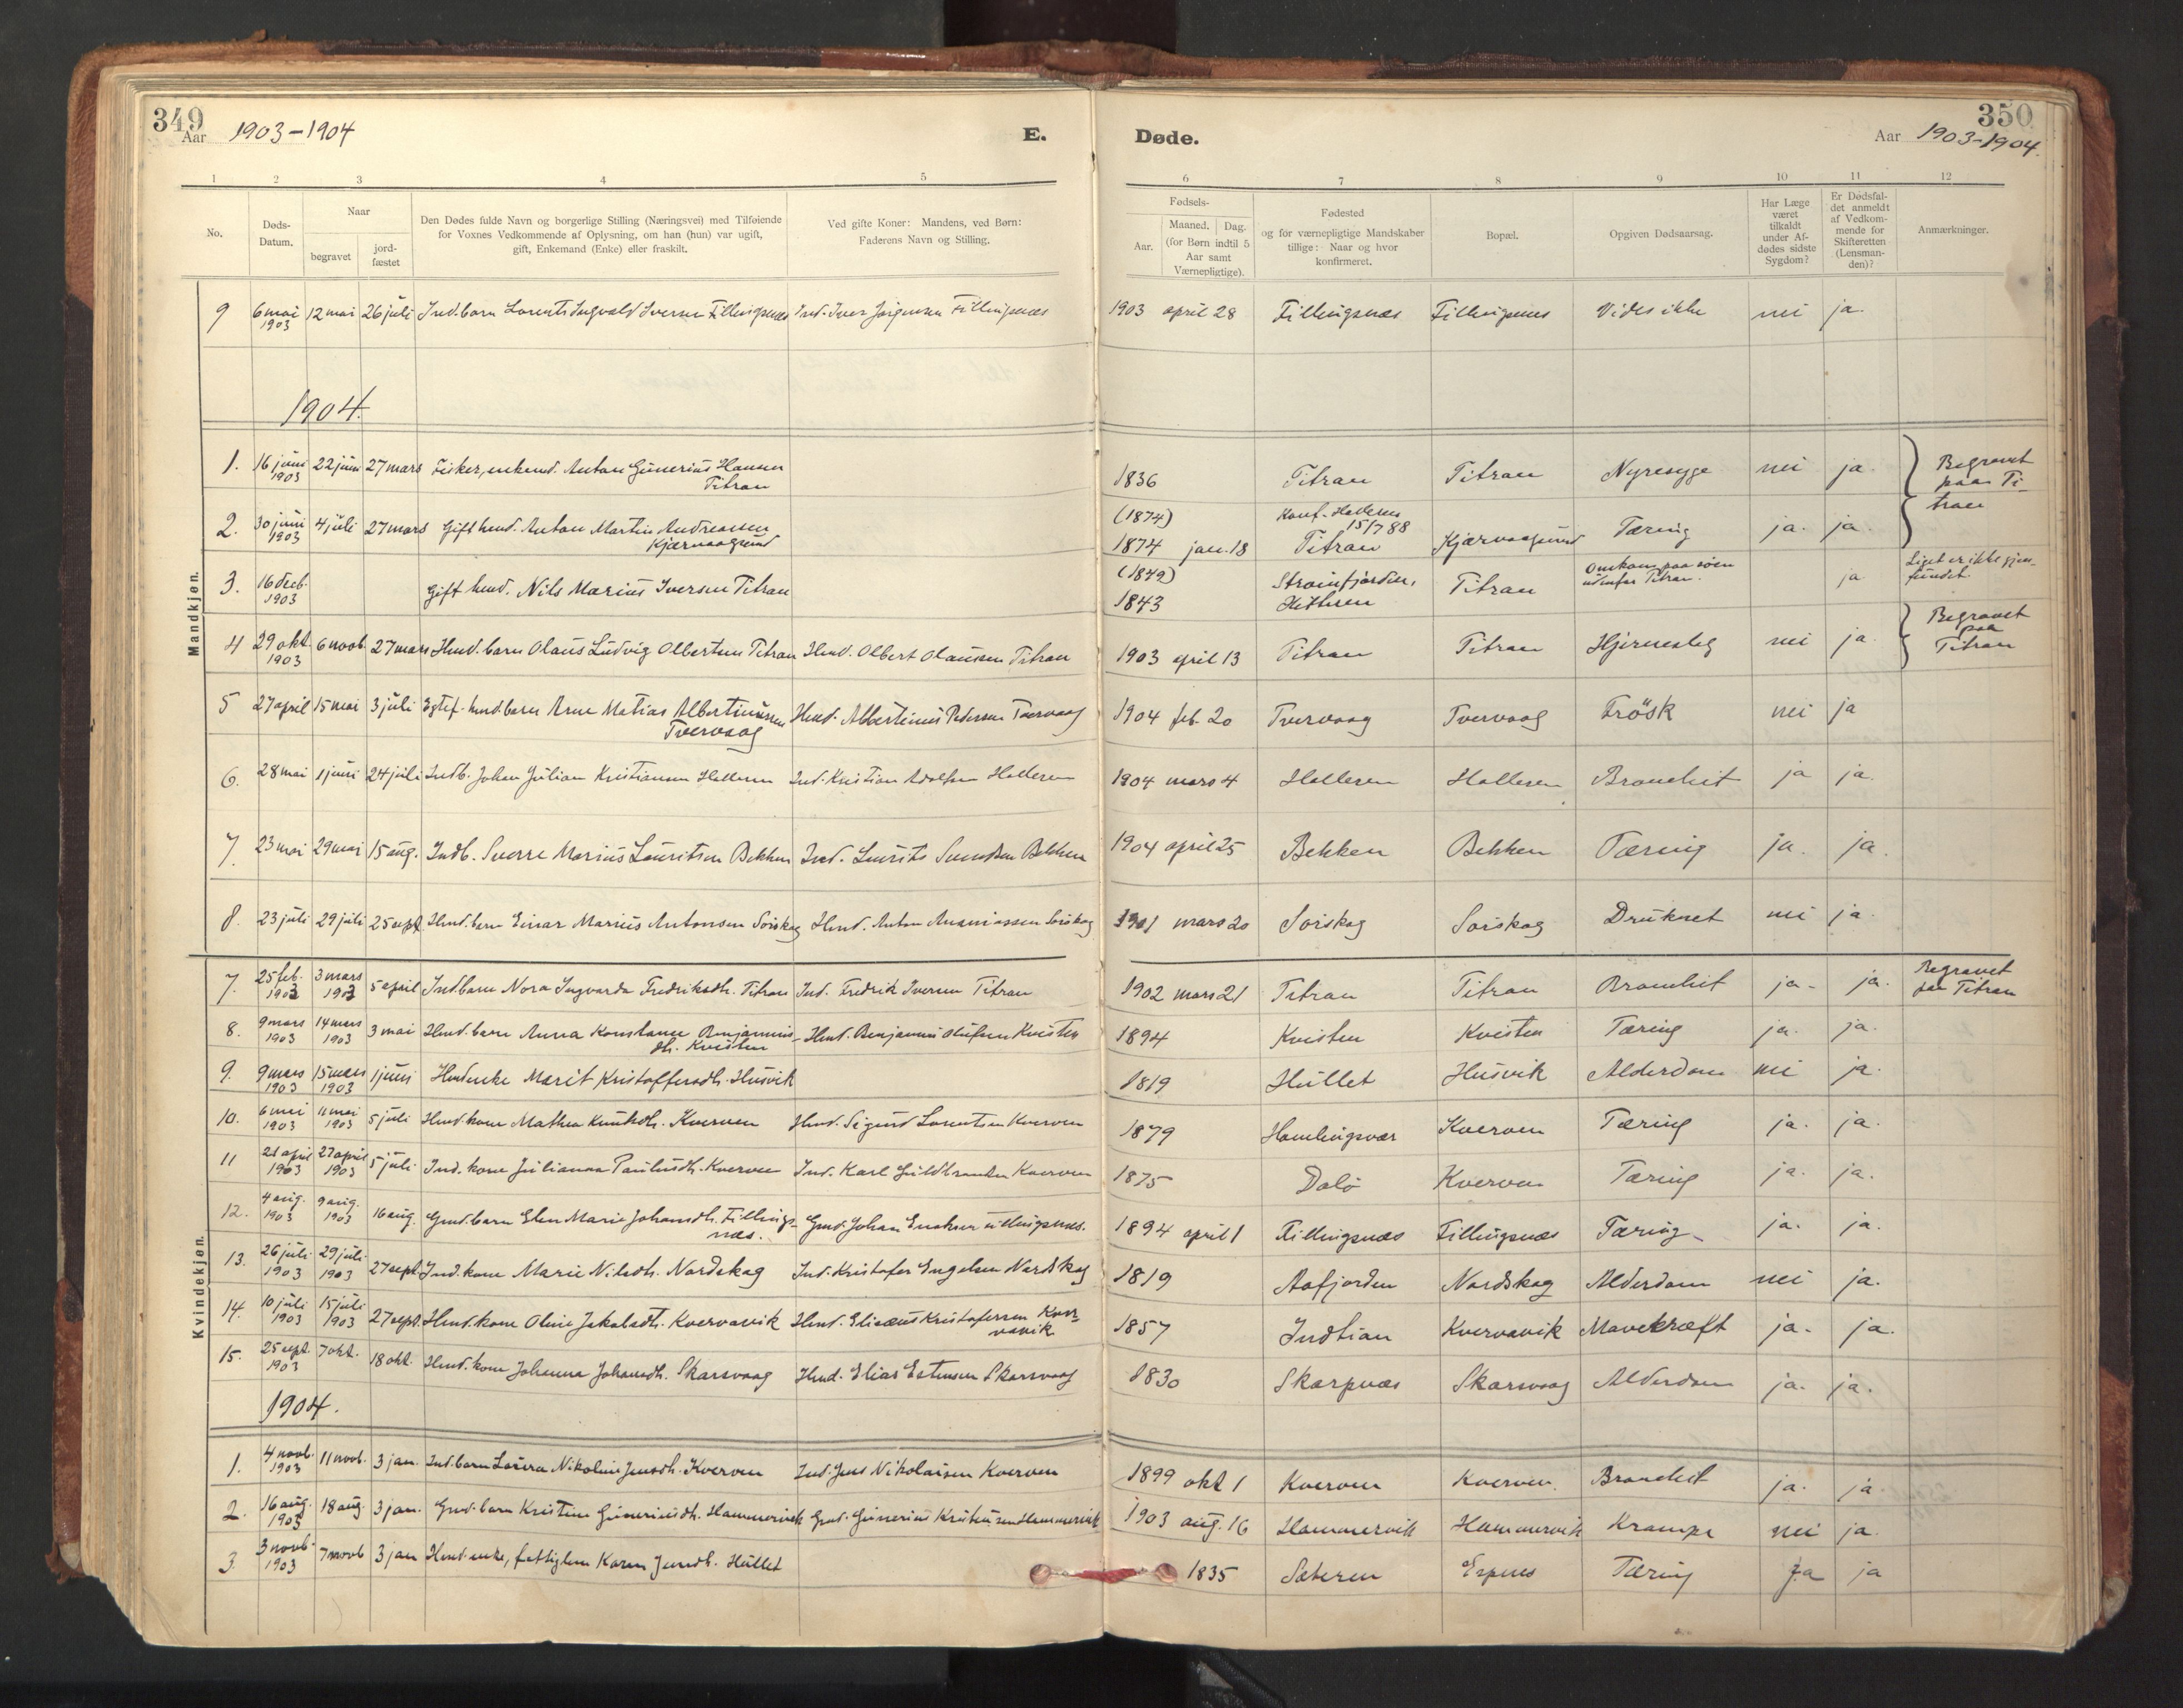 349
Aar 1903-1904
E.
Døde.
350
Aar 1903-1904.
1 2 3 4 5 6 7 8 9 10 11 12
No.
Døds-Datum.
Naar
begravet
jord-fæstet
Den Dødes fulde Navn og borgerlige Stilling (Næringsvei) med Tilføiende
for Voxnes Vedkommende af Oplysning, om han (hun) var ugift,
gift, Enkemand (Enke) eller fraskilt.
Ved gifte Koner: Mandens, ved Børn:
Faderens Navn og Stilling.
Fødsels-
Aar.
Maaned. Dag.
(for Børn indtil 5
Aar samt
Værnepligtige).
Fødested
og for værnepligtige Mandskaber
tillige: Naar og hvor
konfirmeret.
Bopæl.
Opgiven Dødsaarsag.
Har Læge
været
tilkaldt
under Af-
dødes sidste
Sygdom?
Er Dødsfal-
det anmeldt
af Vedkom-
mende for
Skifteretten
(Lensman-
den)?
Anmærkninger.
Mandkjøn.
9 6 mai 1903 12 mai 26 juli Ind.barn Lorents Ingvald Iversen Fillingsnæs Ind. Iver Jørgensen Fillingsnæs 1903 april 28 Fillingsnæs Fillingsnes Vides ikke nei ja.
1904.
1. 16 juni 1903 22 juni 27 mars Fisker, enkemd. Anton Gunerius Hansen Titran 1836 Titran Titran Nyresyge nei ja. Begravet paa Titran
2. 30 juni 1903 4 juli 27 mars Gift hmd. Anton Martin Andreassen Kjærvaagsund (1874) 1874 jan. 18 Konf. Halleren 15/7 88 Titran Kjærvaagsund Tæring ja. ja
3. 16 decb. 1903 Gift hmd. Nils Marius Iversen Titran (1842) 1843 Strømfjorden, Hitteren Titran Omkom paa söen udenfor Titran. ja Liget er ikke gjenfundet.
4 29 okt. 1903 6 novb. 27 mars Hmd. barn Olaus Ludvig Olbertsen Titran Hmd. Olbert Olaussen Titran 1903 april 13 Titran Titran Hjerneslag nei ja. Begravet paa Titran
5 27 april 15 mai 3 juli Egtef. hmd.barn Arne Matias Albertinussen Tvervaag Hmd. Albertinus Pedersen Tvervaag 1904 feb. 20 Tvervaag Tvervaag Trösk nei ja
6. 28 mai 1 juni 24 juli Indb. Johan Julian Kristiansen Halleren Ind. Kristian Adolfsen Halleren 1904 mars 4 Halleren Halleren Bronchit ja ja.
7. 23 mai 29 mai 15 aug. Indb. Sverre Marius Lauritsen Bekken Ind. Laurits Svendsen Bekken 1904 april 25 Bekken Bekken Tæring ja. ja.
8. 23 juli 29 juli 25 sept. Hmd.barn Einar Marius Antonsen Sörskag Hmd. Anton Ananiassen Sörskag 1901 mars 20 Sörskag Sörskag Druknet nei ja.
Kvindekjøn.
7. 25 feb. 1903 3 mars 1903 5 april Indbarn Nora Ingvarda Fredriksdh. Titran Ind. Fredrik Iversen Titran 1902 mars 21 Titran Titran Bronchit ja. ja. Begravet paa Titran
8. 9 mars 1903 14 mars 1903 3 mai Hmd. barn Anna Konstance Benjaminsdh. Kvisten Hmd. Benjamin Olufsen Kvisten 1894 Kvisten Kvisten Tæring ja. ja.
9. 9 mars 1903 15 mars 1903 1 juni Hmdenke Marit Kristoffersdh. Husvik 1819 Hullet Husvik Alderdom nei ja.
10. 6 mai 1903 11 mai 1903 5 juli Hmd. kone Mathea Knutsdh. Kverven Hmd. Sigurd Lorentsen Kverven 1879 Homlingsvær Kverven Tæring ja. ja.
11 21 april 1903 27 april 1903 5 juli Ind. kone Julianna Paulusdh. Kverven Ind. Karl Guldbrandsen Kverven 1875 Dalö Kverven Tæring ja. ja.
12. 4 aug. 1903 9 aug. 1903 16 aug. Gmd.barn Elen Marie Johansdh. Fillingsnæs. Gmd. Johan Enoksen Fillingsnæs. 1894 april 1 Fillingsnæs Fillingsnæs Tæring ja. ja.
13. 26 juli 1903 29 juli 1903 27 sept. Ind. kone Marie Nilsdh. Nordskag Ind. Kristofer Engelsen Nordskag 1819 Aafjorden Nordskag Alderdom nei ja.
14. 10 juli 1903 15 juli 1903 27 sept. Hmd. kone Oline Jakobsdh. Kvervavik Hmd. Elisæus Kristofersen Kvervavik 1857 Indtian Kvervavik Mavekræft ja. ja.
15. 25 sept. 1903 7 okt. 18 okt. Hmd. kone Johanna Johansdh. Skarsvaag Hmd. Elias Estensen Skarsvaag 1830 Skarpnæs Skarsvaag Alderdom ja. ja.
1904.
1. 4 novb. 1903 11 novb. 3 jan. Ind.barn Laura Nikoline Jensdh. Kverven Ind. Jens Nikolaisen Kverven 1899 okt 1 Kverven Kverven. Bronchit ja. ja
2. 16 aug. 1903 18 aug. 3 jan. Gmd. barn Kristine Guneriusdh. Hammervik Gmd. Gunerius Kristiansen Hammervik 1903 aug. 16 Hammervik Hammervik Krampe nei ja.
3. 3 novb. 1903 7 novb 3 jan Hmd enke, fattiglem Karen Jensdh. Hullet 1835 Sæteren Espnes Tæring Ja ja